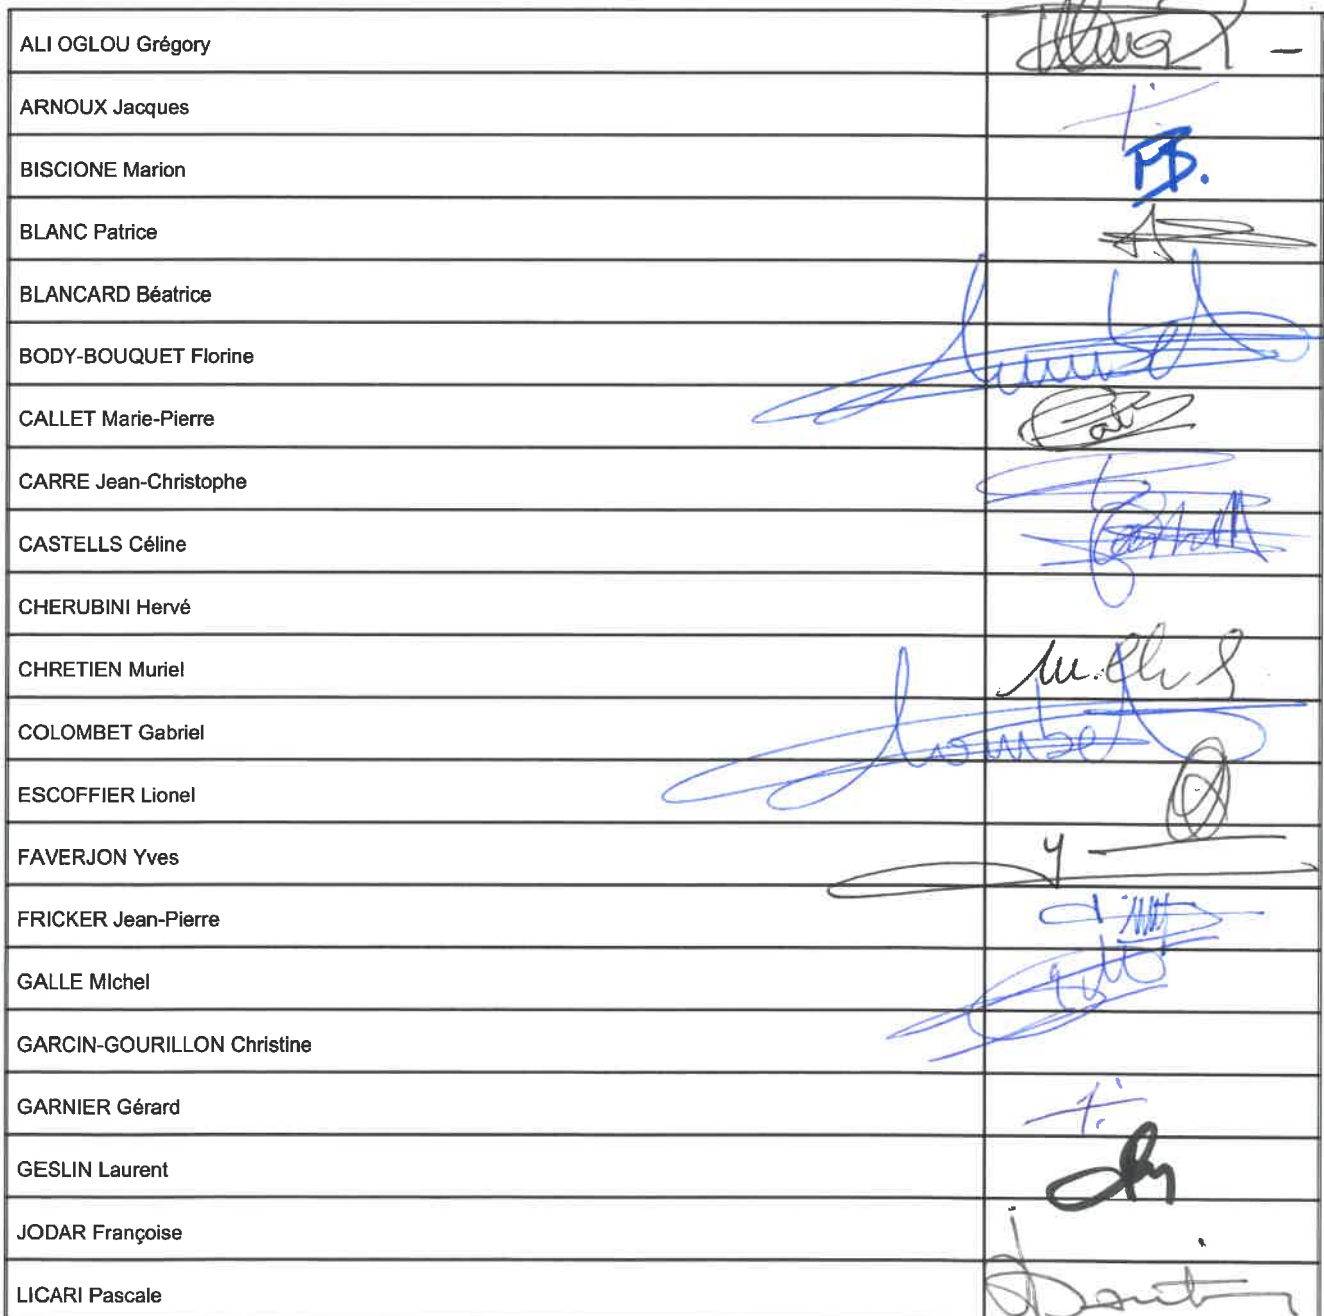 ALI OGLOU Grégory
ARNOUX Jacques
BISCIONE Marion
BLANC Patrice
BLANCARD Béatrice
BODY-BOUQUET Florine
CALLET Marie-Pierre
CARRE Jean-Christophe
CASTELLS Céline
CHERUBINI Hervé
CHRETIEN Muriel
COLOMBET Gabriel
ESCOFFIER Lionel
FAVERJON Yves
FRICKER Jean-Pierre
GALLE MIchel
GARCIN-GOURILLON Christine
GARNIER Gérard
GESLIN Laurent
JODAR Françoise
LICARI Pascale